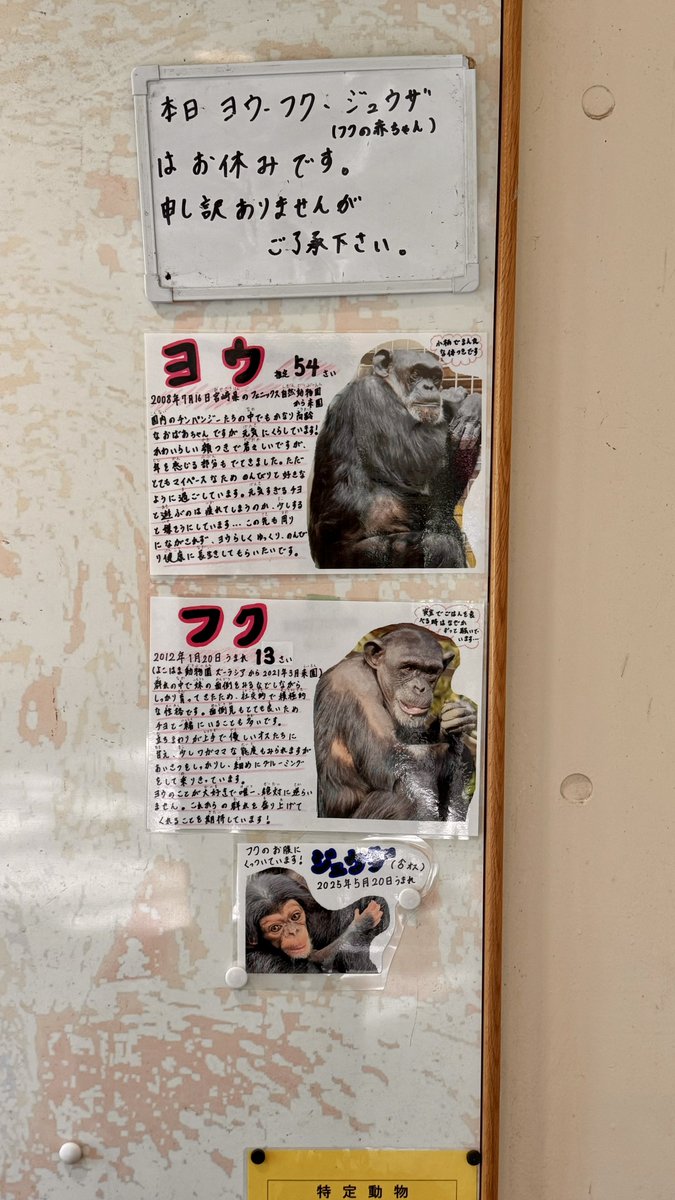 本日 ヨウ・フク・ジュウザ
(フクの赤ちゃん)
はお休みです。
申し訳ありませんが
ご了承下さい。
ヨウ 推定 54 さい
小柄でまん丸
な体つきです
2008年7月16日宮崎県のフェニックス自然動物園
から来園
国内のチンパンジーたちの中でもかなり高齢
なおばあちゃんですが元気にくらしています!
かわいらしい顔つきで若々しいですが、
年を感じる部分もでてきました。ただ
とてもマイペースなため のんびりと好きな
ように過ごしています。元気すぎるチヨ
と遊ぶのは疲れてしまうのか、少しする
と嫌そうにしています…この先も周り
にながされず、ヨウらしくゆっくり、のんび
り健康に長生きしてもらいたいです。
フク
室でごはんを食
べる時はなぜか
ずっと
ています…
2012年1月20日うまれ 13さい
(よこはま動物園ズーラシアから2021年3月来園)
群れの中で妹の面倒をみるなどしながら、
しっかり育ってきたため、社交的で積極的
な性格です。面倒見もとても良いため
チヨと一緒にいることも多いです。
立ちまわりが上手で優しいオスたちに
甘え、少しワガママな態度もみられますが
あいさつをしっかりし、細めにグルーミング
をして乗りきっています。
ヨウのことが大好きで唯一、絶対に逆らい
ません。これからの群れを盛り上げて
くれることを期待しています!
フクのお腹に
くっついています!
ジュウザ (♂オス)
2025年5月20日うまれ
特定動物